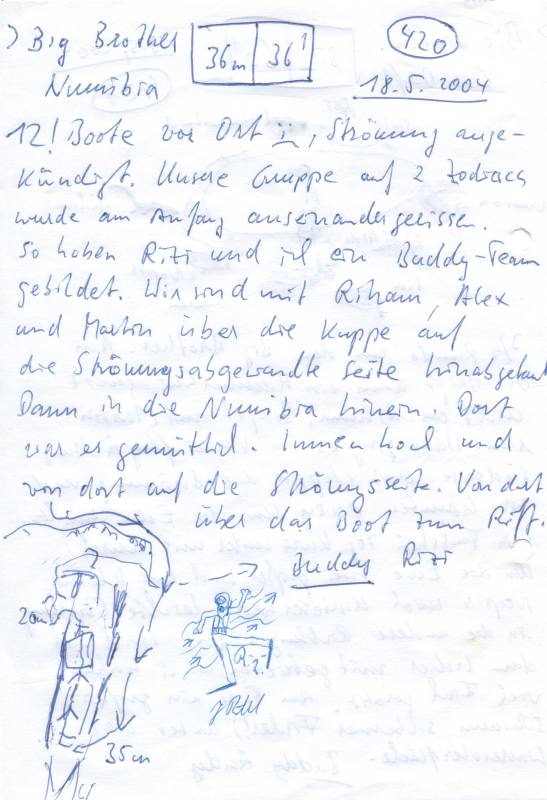 Big Brother 36m 36' 420
Numibia 18.5.2004
12! Boote vor Ort, Strömung ange-
kündigt. Unsere Gruppe auf 2 Zodiacs
wurde am Anfang auseinandergerissen.
So haben Rizi und ich ein Buddy-Team
gebildet. Wir sind mit Riham, Alex
und Martin über die Kuppe auf
die Strömungsabgewandte Seite hinabgetaucht
Dann in die Numibia hinein. Dort
war es gemütlich. Innen hoch und
von dort auf die Strömungsseite. Von dort
über das Boot zum Riff.
Buddy Rizi
20m
Rizi
35m